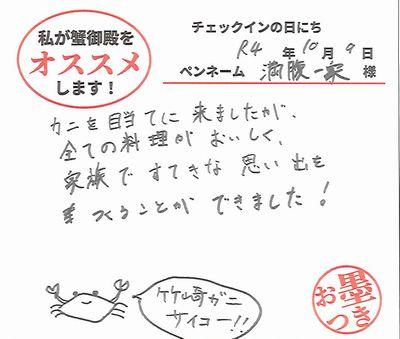 私が蟹御殿を
オススメ
します！
チェックインの日にち
R4年10月9日
ペンネーム 満腹一家 様
カニを目当てに来ましたが、
全ての料理がおいしく、
家族ですてきな思い出を
つくることができました！
竹崎ガニ
サイコー!!
お墨つき